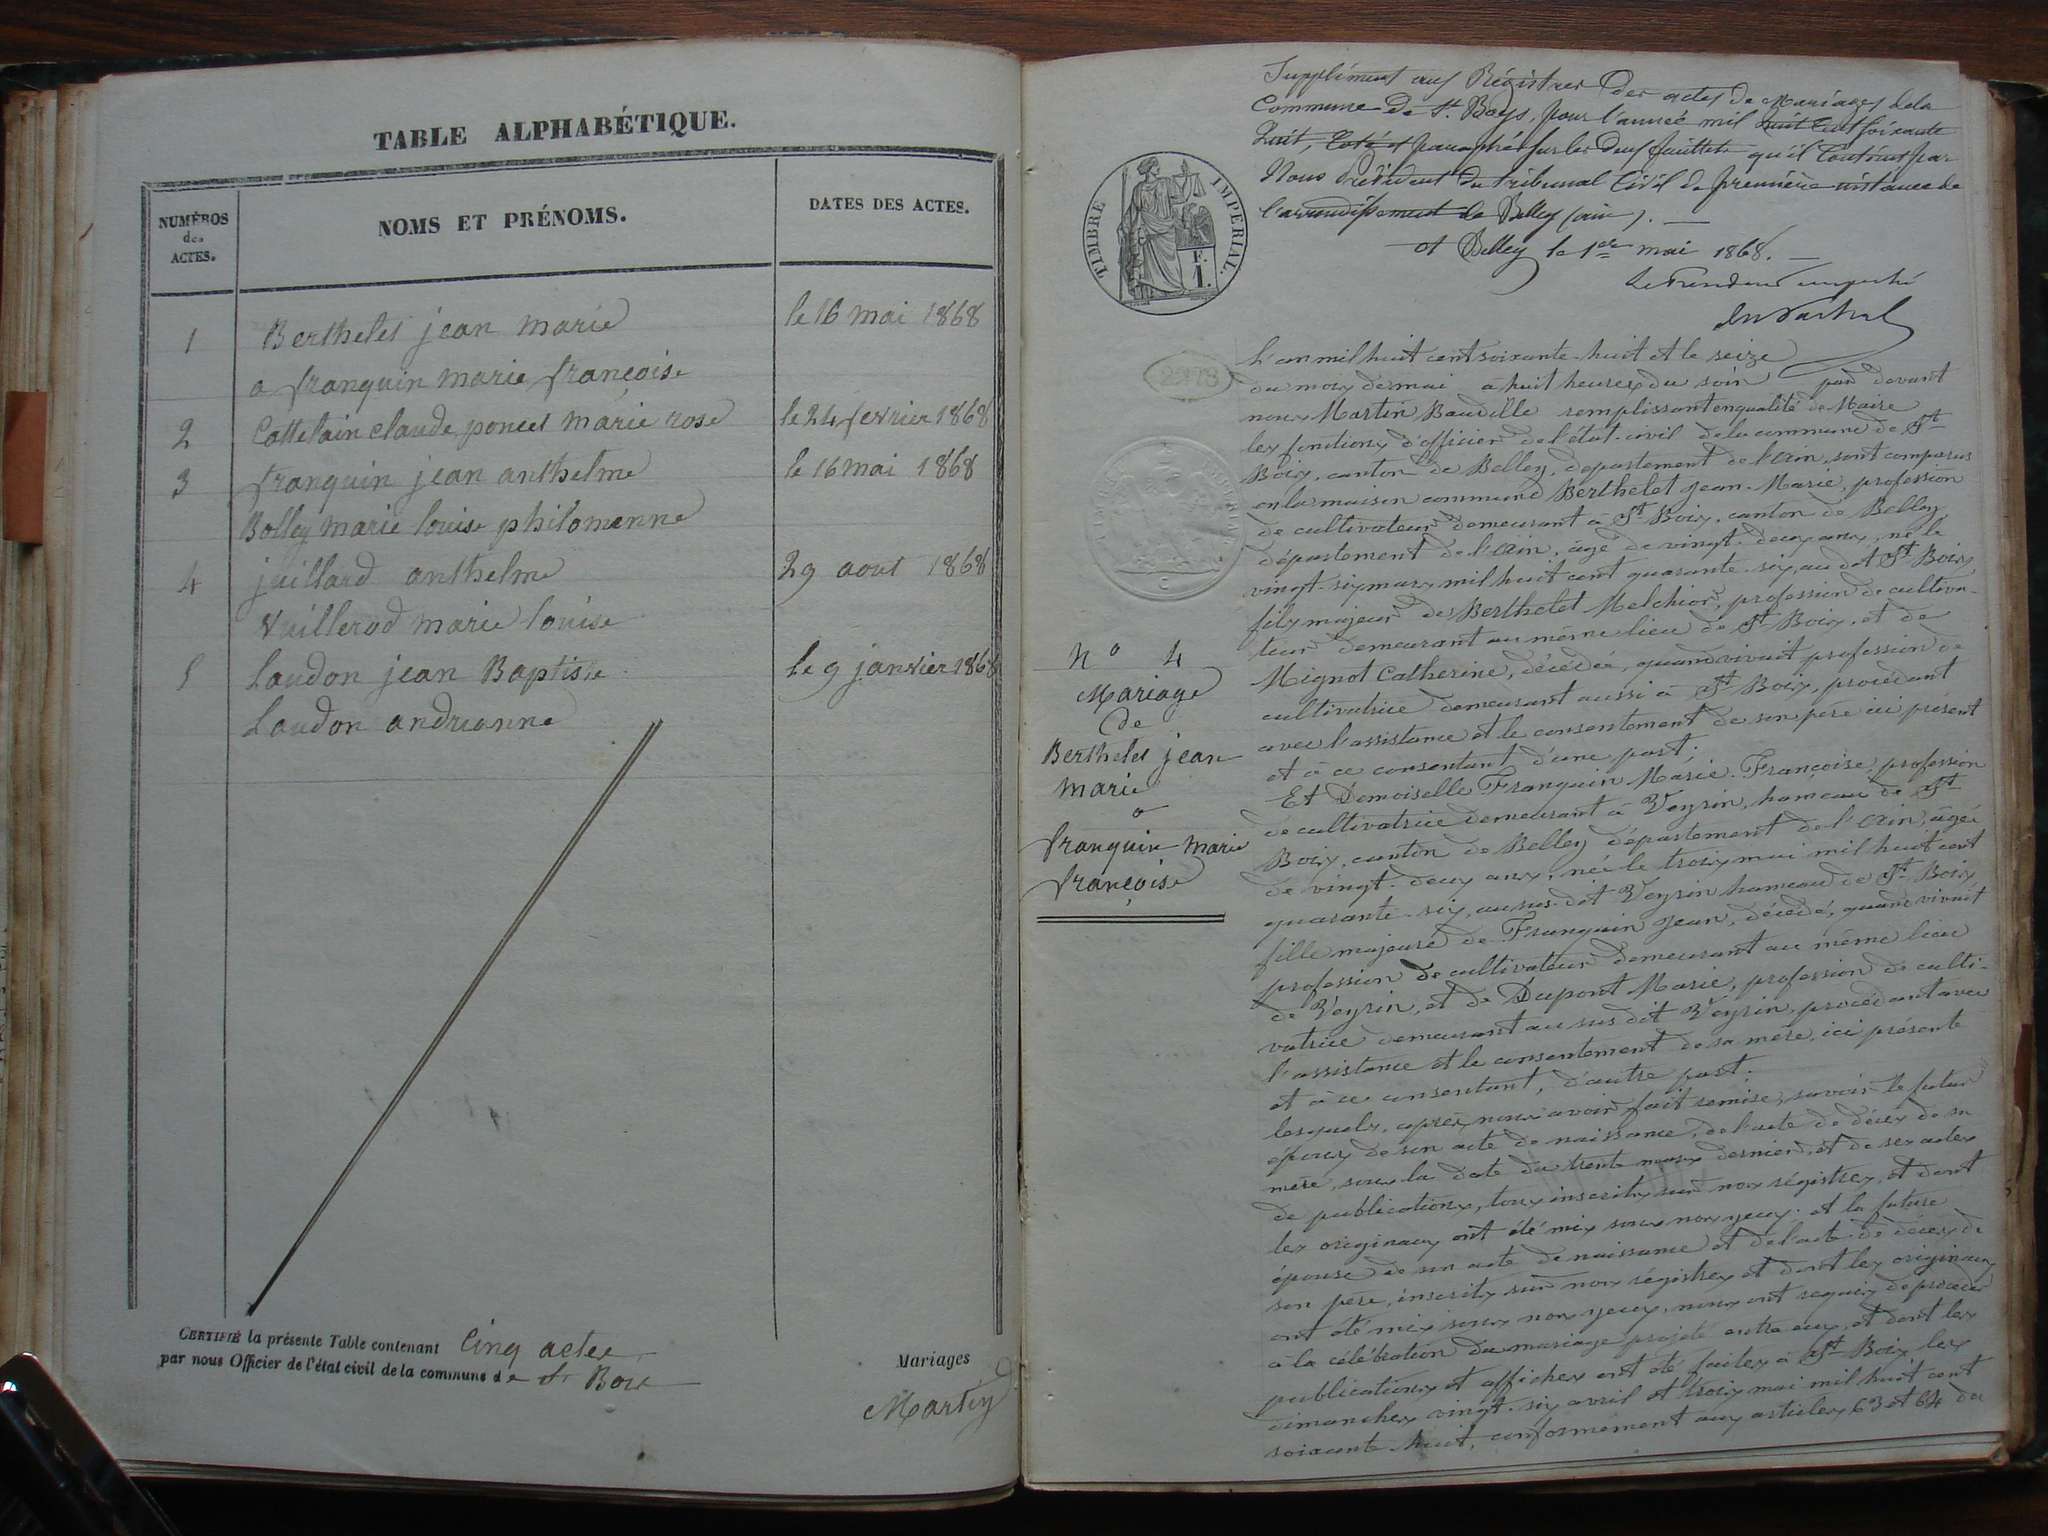 TABLE ALPHABÉTIQUE.
NUMÉROS
des
ACTES.
NOMS ET PRÉNOMS.
DATES DES ACTES.
1 Berthelet jean marie le 16 mai 1868
a franquin marie françoise
2 Cattelain claude poncet marie rose le 24 fevrier 1868
3 franquin jean anthelme le 16 mai 1868
Bolley marie louise philomenne
4 juillard anthelme 29 aout 1868
Vuillerod marie louise
5 Laudon jean Baptiste le 9 janvier 1868
Laudon andrianne
CERTIFIÉ la présente Table contenant Cinq actes
par nous Officier de l'état civil de la commune de St Bois
Mariages
Martin
Supplément aux Régistres des actes de Mariages de la
Commune de St. Boys, pour l'année mil huit cent soixante
huit, Coté et paraphé sur les deux feuillets qu'il Contient par
Nous Président du Tribunal Civil de première instance de
l'arrondissement de Belley (ain).
A Belley le 1er mai 1868.
TIMBRE IMPÉRIAL.
F.
1.
L'an mil huit cent soixante-huit et le seize
du mois de mai à huit heures du soir par devant
nous Martin Baudille remplissant en qualité de Maire
les fonctions d'officier de l'état-civil de la commune de St
Boix, canton de Belley, département de l'Ain, sont comparus
en la maison commune Berthelet Jean-Marie, profession
de cultivateur demeurant à St Boix, canton de Belley
département de l'Ain, âgé de vingt-deux ans, né le
vingt-six mars mil huit cent quarante-six, au dit St Boix,
fils majeur de Berthelet Melchior, profession de cultiva-
teur demeurant au même lieu de St Boix, et de
Mignot Catherine, décédée, quand vivait profession de
cultivatrice demeurant aussi à St Boix, procédant
avec l'assistance et le consentement de son père ici présent
et à ce consentant d'une part;
Et Demoiselle Franquin Marie-Françoise, profession
de cultivatrice demeurant à Veyrin, hameau de St
Boix, canton de Belley département de l'Ain, âgée
de vingt-deux ans, née le trois mai mil huit cent
quarante-six, au sus-dit Veyrin hameau de St Boix
fille majeure de Franquin Jean, décédé, quand vivait
profession de cultivateur demeurant au même lieu
de Veyrin, et de Dupont Marie, profession de culti-
vatrice demeurant au sus dit Veyrin, procédant avec
l'assistance et le consentement de sa mère, ici présente
et à ce consentant, d'autre part.
Lesquels, après nous avoir fait remise, savoir le futur
époux de son acte de naissance, de l'acte de décès de sa
mère, sous la date du trente mars dernier, et de ses actes
de publications, tous inscrits sur nos régistres, et dont
les originaux ont été mis sous nos yeux; et la future
épouse de son acte de naissance et de l'acte de décès de
son père, inscrits sur nos régistres et dont les originaux
ont été mis sous nos yeux, nous ont requis de procéder
à la célébration du mariage projeté entre eux, et dont les
publications et affiches ont été faites à St Boix les
dimanches vingt-six avril et trois mai mil huit cent
soixante-huit, conformément aux articles 63 et 64 du
N° 4
Mariage
de
Berthelet jean
marie
a
franquin marie
françoise